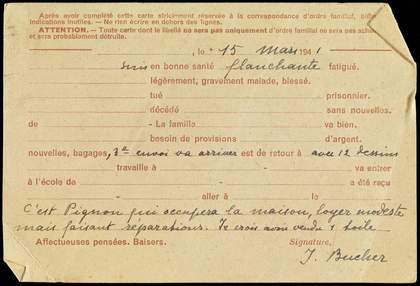 Après avoir complété cette carte strictement réservée à la correspondance d'ordre familial,
indications inutiles. — Ne rien écrire en dehors des lignes.
ATTENTION. — Toute carte dont le libellé ne sera pas uniquement d'ordre familial ne sera pas
et sera probablement détruite.
, le 15 Mars 1941
suis en bonne santé flanchante fatigué.
légèrement, gravement malade, blessé.
tué prisonnier.
décédé sans nouvelles.
de — La famille va bien.
besoin de provisions d'argent.
nouvelles, bagages, 3e envoi va arriver est de retour à avec 12 dessins
travaille à va entrer
à l'école de a été reçu
aller à le
C'est Pignon qui occupera la maison, loyer modeste
mais faisant réparations. Je crois avoir vendu 1 toile
Affectueuses pensées. Baisers. Signature,
J. Bucher